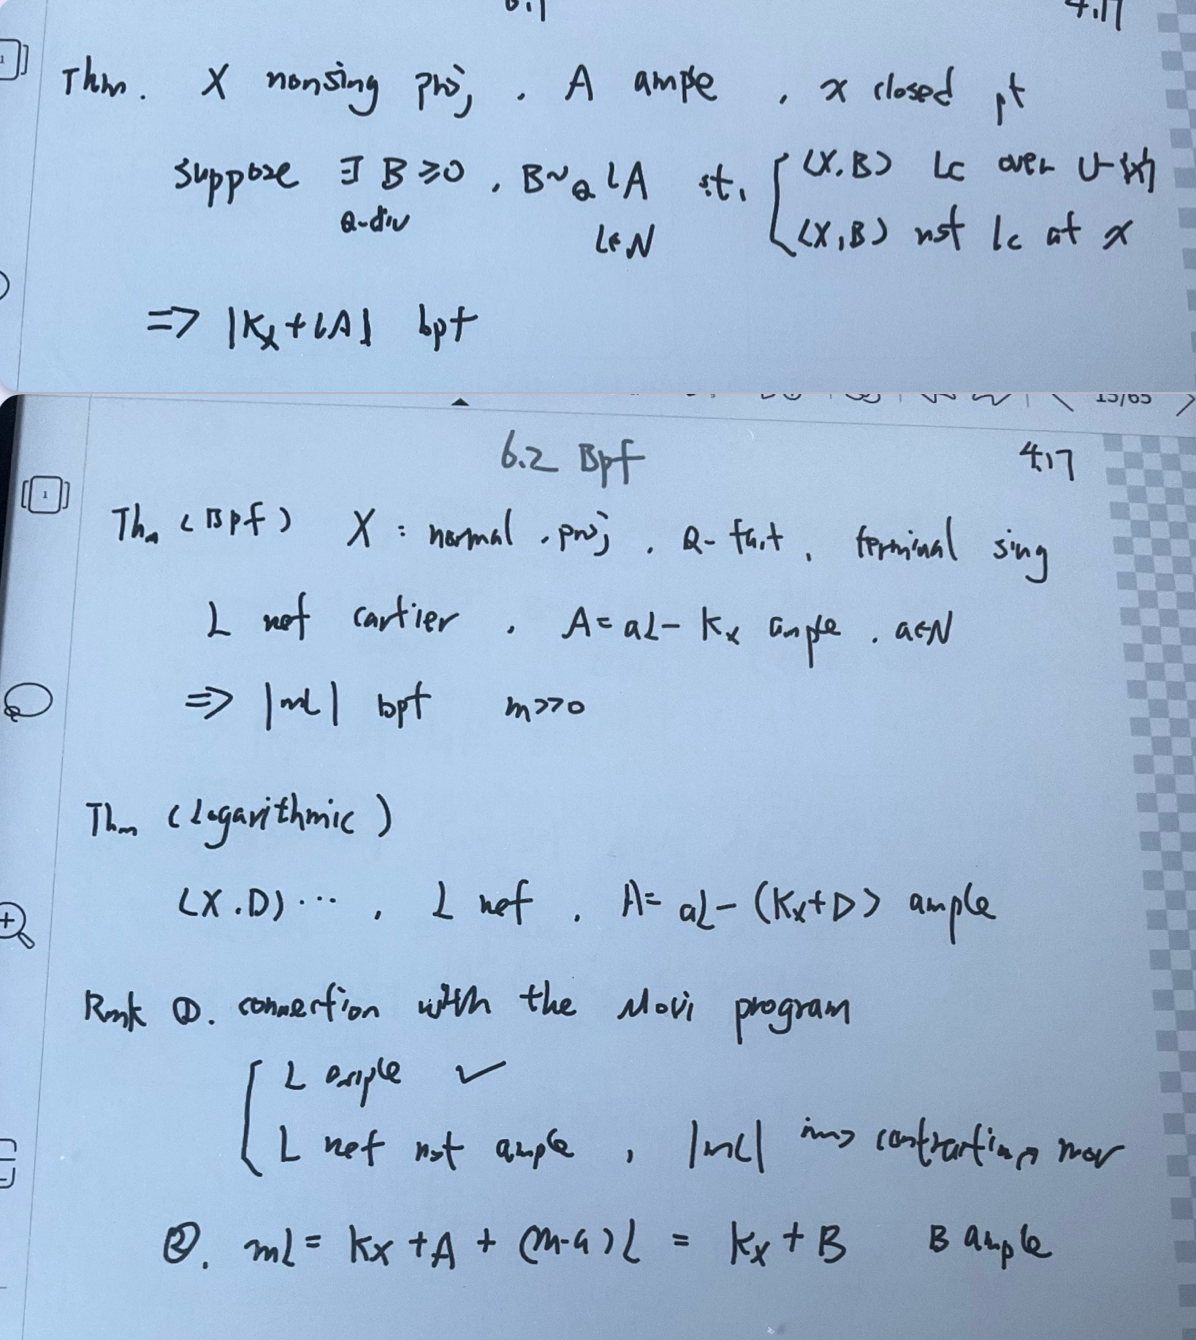 6.1 4.17
Thm. X nonsing proj, A ample, x closed pt
suppose ∃ B ≥ 0, B ~_Q lA st. { (X.B) lc over U-{x}
Q-div l∈N (X,B) not lc at x
⇒ |K_X + lA| bpf
15/65
6.2 Bpf 4.17
Thm (Bpf) X : normal, proj, Q-fact, terminal sing
L nef cartier, A = aL - K_X ample, a∈N
⇒ |mL| bpf m>>0
Thm (Logarithmic)
(X.D) ..., L nef, A = aL - (K_X + D) ample
Rmk ①. connection with the Mori program
{ L ample ✓
L nef not ample, |mL| contracting mor
②. mL = K_X + A + (m-a)L = K_X + B B ample